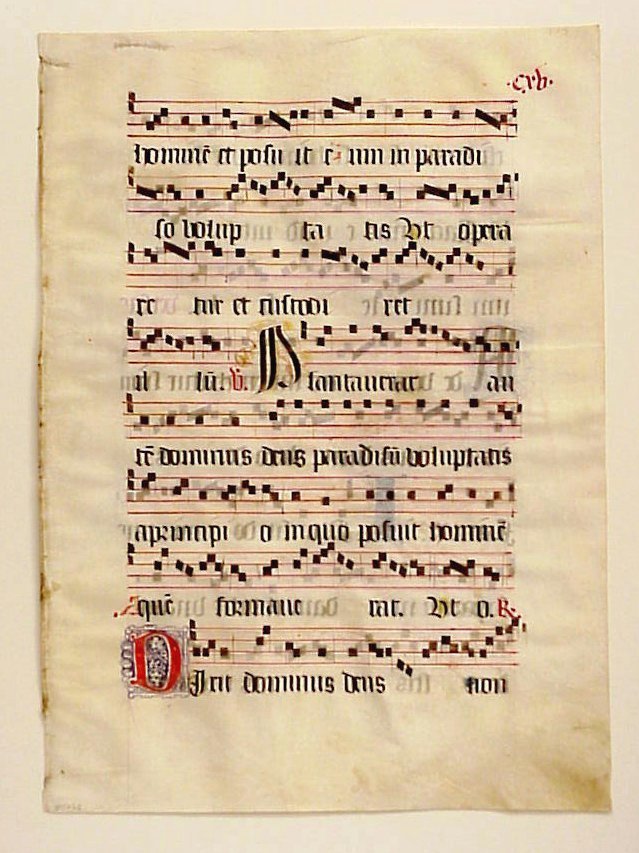 ·cxv·
hominē et posu it e um in paradi
so volup ta tis Vt opera
re tur et custodi ret
il lū. V. Plantauerat au
tē dominus deus paradisū voluptatis
aprincipi o in quo posuit hominē
quē formaue rat. Vt o. R.
DIxit dominus deus non